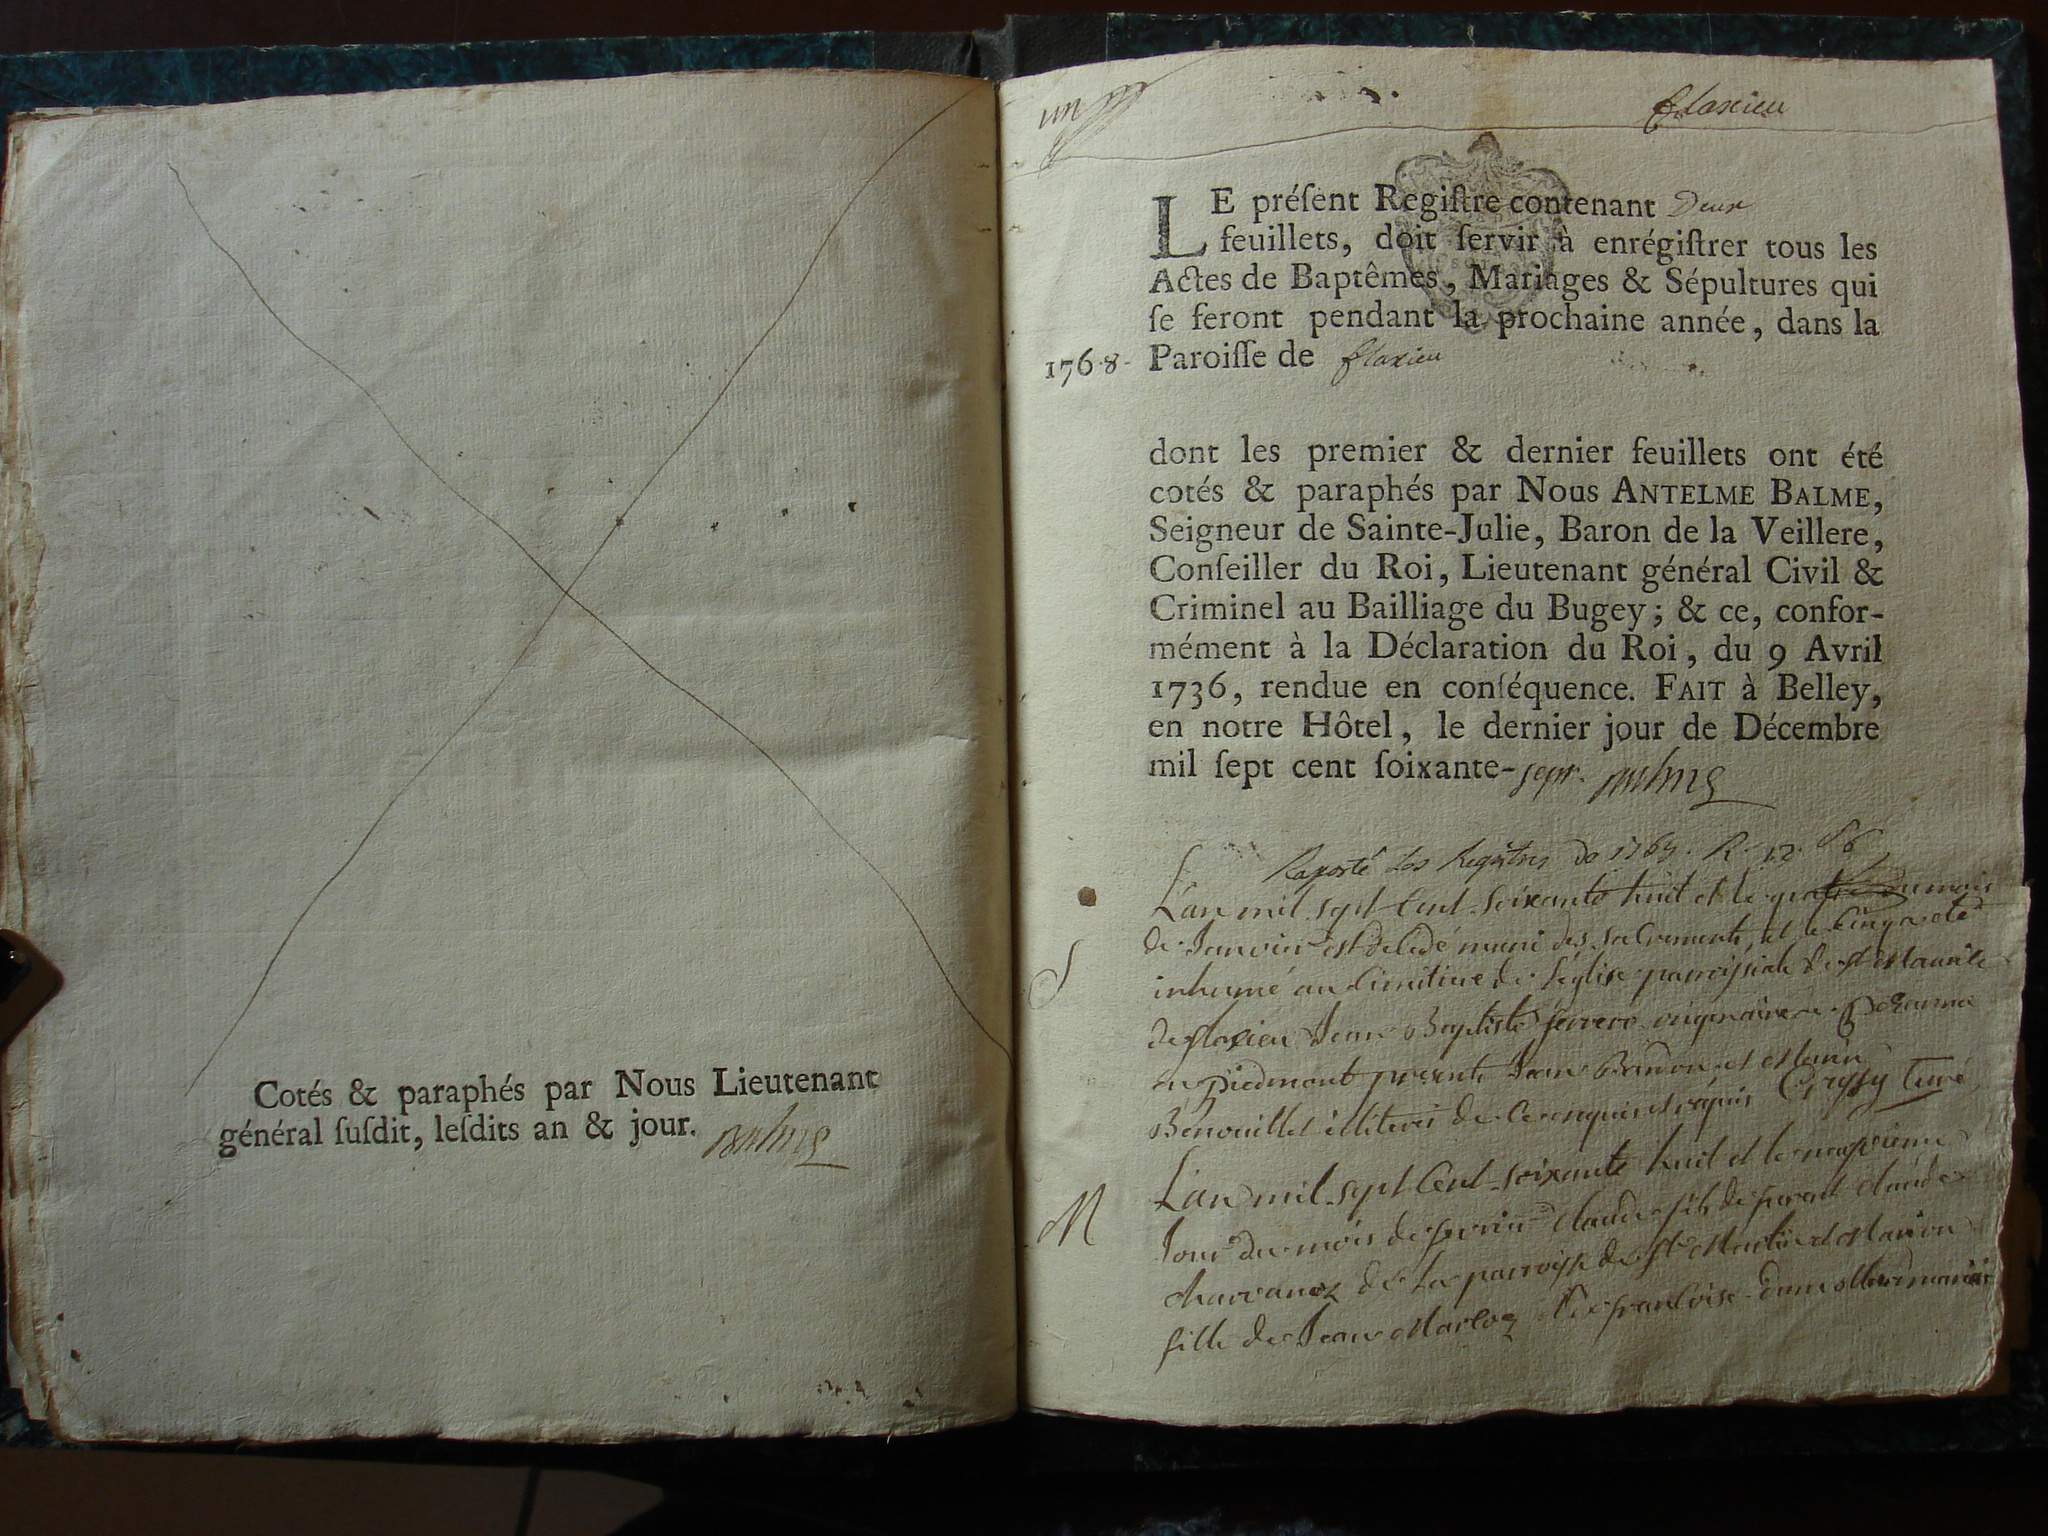 Cotés & paraphés par Nous Lieutenant
général ſuſdit, leſdits an & jour. Balme
un
flaxieu
LE préſent Regiſtre contenant Deux
feuillets, doit ſervir à enrégiſtrer tous les
Actes de Baptêmes, Mariages & Sépultures qui
ſe feront pendant la prochaine année, dans la
1768- Paroiſſe de flaxieu
dont les premier & dernier feuillets ont été
cotés & paraphés par Nous ANTELME BALME,
Seigneur de Sainte-Julie, Baron de la Veillere,
Conſeiller du Roi, Lieutenant général Civil &
Criminel au Bailliage du Bugey; & ce, confor-
mément à la Déclaration du Roi, du 9 Avril
1736, rendue en conſéquence. FAIT à Belley,
en notre Hôtel, le dernier jour de Décembre
mil ſept cent ſoixante-sept. Balme
Raporté les Registres de 1767. R. 12.
L'an mil sept Cent soixante huit et le quatre du mois
S de Janvier est decedé muni des sacrements, et le Cinq a eté
inhumé au Cimitiere de l'église parroissiale de st Maurice
de flaxieu Jean Baptiste ferrero originaire de
en piedmont presents Jean et
illiterés de Ce enquis et requis Curé
M L'an mil sept Cent soixante huit et le neuvieme
Jour du mois de fevrier Claude fils de Claude
de la parroisse de st Martin et Marion
fille de Jean et de francoise